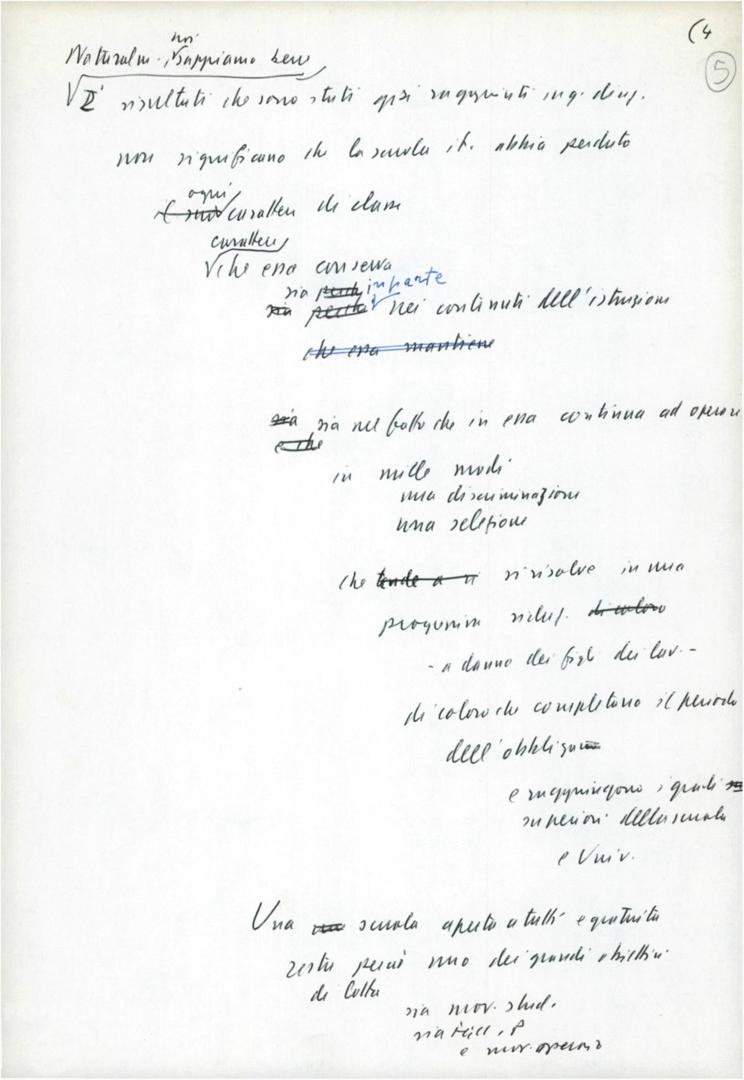 (4
5
noi
Naturalm. sappiamo bene
I risultati che sono stati qui raggiunti in q. direz.
non significano che la scuola it. abbia perduto
ogni
il suo carattere di classe
carattere
che essa conserva
sia in parte
sia perché nei contenuti dell'istruzione
che essa mantiene
sia sia nel fatto che in essa continua ad operare
e che
in mille modi
una discriminazione
una selezione
che tende a si si risolve in una
di coloro
- a danno dei figli dei lav. -
di coloro che completano il periodo
dell'obbligo
e raggiungono i gradi
superiori della scuola
e Univ.
Una scuola aperta a tutti e gratuita
resta perciò uno dei grandi obiettivi
di lotta
sia mov. stud.
sia
e mov. operaio